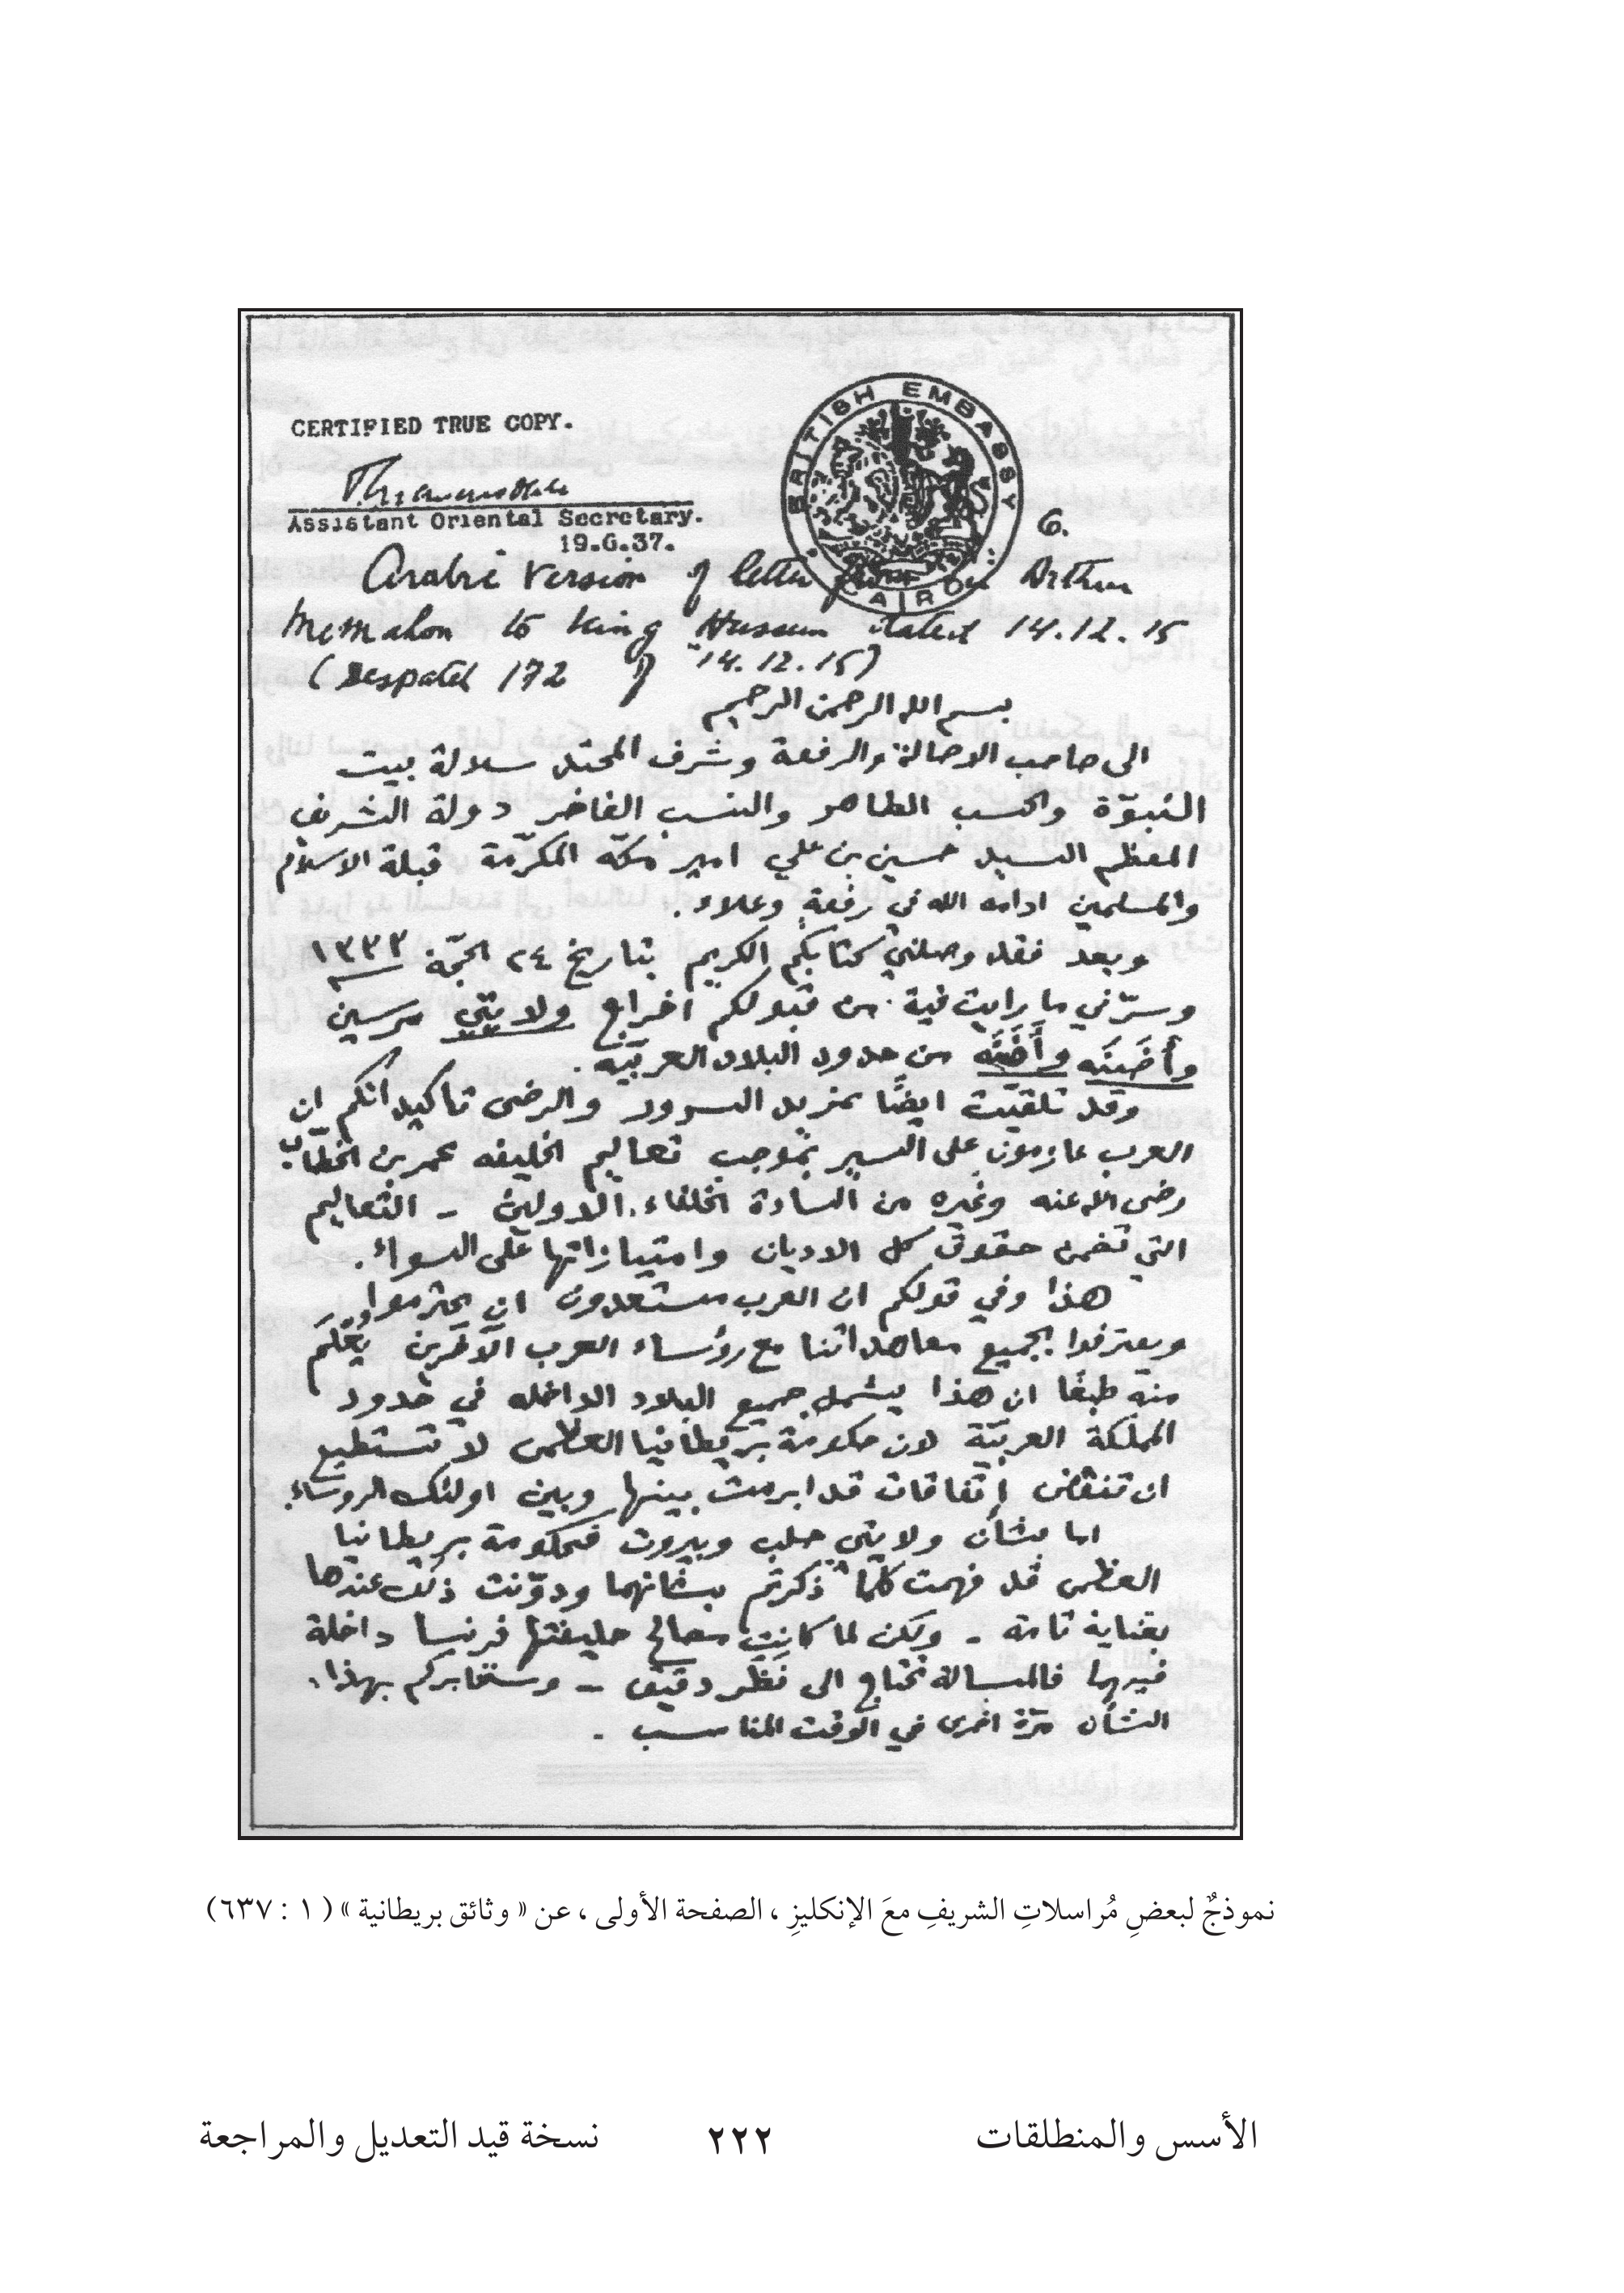 CERTIFIED TRUE COPY.
BRITISH EMBASSY
CAIRO
Assistant Oriental Secretary.
19.6.37.
6.
Arabic version of letter from Sir Arthur
McMahon to King Hussein dated 14.12.15
(Despatch 172 of 14.12.15)
بسم الله الرحمن الرحيم
الى صاحب الاصالة والرفعة وشرف المحتد سلالة بيت
النبوّة والحسب الطاهر والنسب الفاخر دولة الشريف
المعظم السيد حسين بن علي امير مكّه المكرّمة قبلة الاسلام
والمسلمين ادامه الله في رفعة وعلاء .
وبعد فقد وصلني كتابكم الكريم بتاريخ ٢٤ الحجّة ١٣٣٣
وسرّني ما رايت فيه من قبولكم اخراج ولايتي مرسين
وأضَنَه وأَضَنَه من حدود البلاد العربيّه .
وقد تلقيّت ايضًا بمزيد السرور والرضى تاكيداتكم ان
العرب عازمون على السير بموجب تعاليم الخليفه عمر بن الخطّاب
رضى الله عنه وغيره من السادة الخلفاء الاولين – التعاليم
التي تضمن حقوق كل الاديان وامتيازاتها على السواء .
هذا وفي قولكم ان العرب مستعدون ان يحترموا
ويعترفوا بجميع معاهداتنا مع رؤساء العرب الآخرين يُعْلَم
منه طبعًا ان هذا يشمل جميع البلاد الداخله في حدود
المملكة العربيّة لان حكومة بريطانيا العظمى لا تستطيع
ان تنقض إتفاقات قد ابرمت بينها وبين اولئك الروساء .
اما بشأن ولايتى حلب وبيروت فحكومة بريطانيا
العظمى قد فهمت كلّما ذكرتم بشانهما ودوّنت ذلك عندها
بعناية تامة - ولكن لما كانت مصالح حليفتها فرنسا داخلة
فيهما فالمسالة تحتاج الى نَظَر دقيق – وسنخابركم بهذا
الشأن مرّة اخرى في الوقت المناسب .
نموذجٌ لبعضِ مُراسلاتِ الشريفِ معَ الإنكليزِ ، الصفحة الأولى ، عن « وثائق بريطانية » ( ١ : ٦٣٧)
الأسس والمنطلقات ٢٢٢ نسخة قيد التعديل والمراجعة